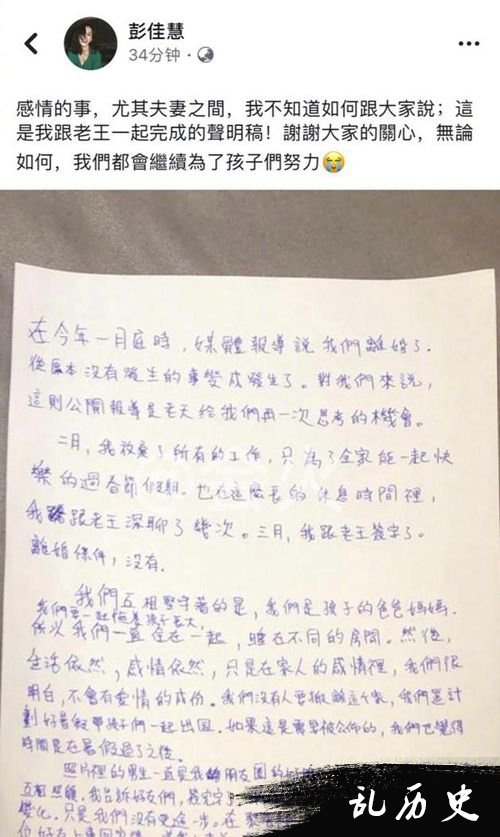 彭佳慧
34分钟 ·
感情的事，尤其夫妻之間，我不知道如何跟大家說；這
是我跟老王一起完成的聲明稿！謝謝大家的關心，無論
如何，我們都會繼續為了孩子們努力😭
在今年一月底時，媒體報導說我們離婚了.
從原本沒有發生的事變成發生了。對我們來說，
這則公開報導是老天給我們再一次思考的機會。
二月，我放棄了所有的工作，只為了全家能一起快
樂的過春節假期。也在這麼長的休息時間裡，
我跟老王深聊了幾次。三月，我跟老王簽字了。
離婚條件，沒有.
我們互相堅守著的是，我們是孩子的爸爸媽媽.
我們要一起陪著孩子長大,
所以我們一直住在一起，睡在不同的房間。然後，
生活依然，感情依然，只是在家人的感情裡，我們很
明白，不會有愛情的成份。我們沒有人要抛離這個家，我們是計
劃好暑假帶孩子們一起出國。如果這是需要被公佈的，我們也覺得
時間是在暑假過了之後。
照片裡的男生一直是我的朋友圈的好
互相照顧。我告訴好友們，簽完字了
變化。只是我們沒有更進一步。在
乱历史